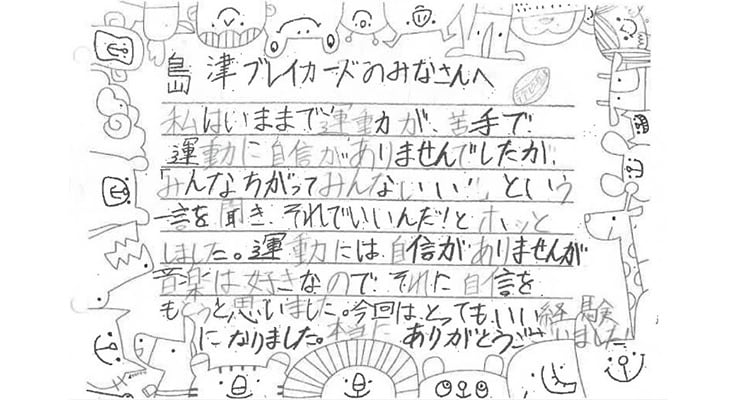 島津ブレイカーズのみなさんへ
私はいままで運動が、苦手で
運動に自信がありませんでしたが、
「みんなちがってみんないい」、という
言を聞き、それでいいんだ!とホッと
しました。運動には自信がありませんが
音楽は好きなので、それに自信を
もとうと思いました。今回は、とってもいい経験
になりました。本当にありがとうございました